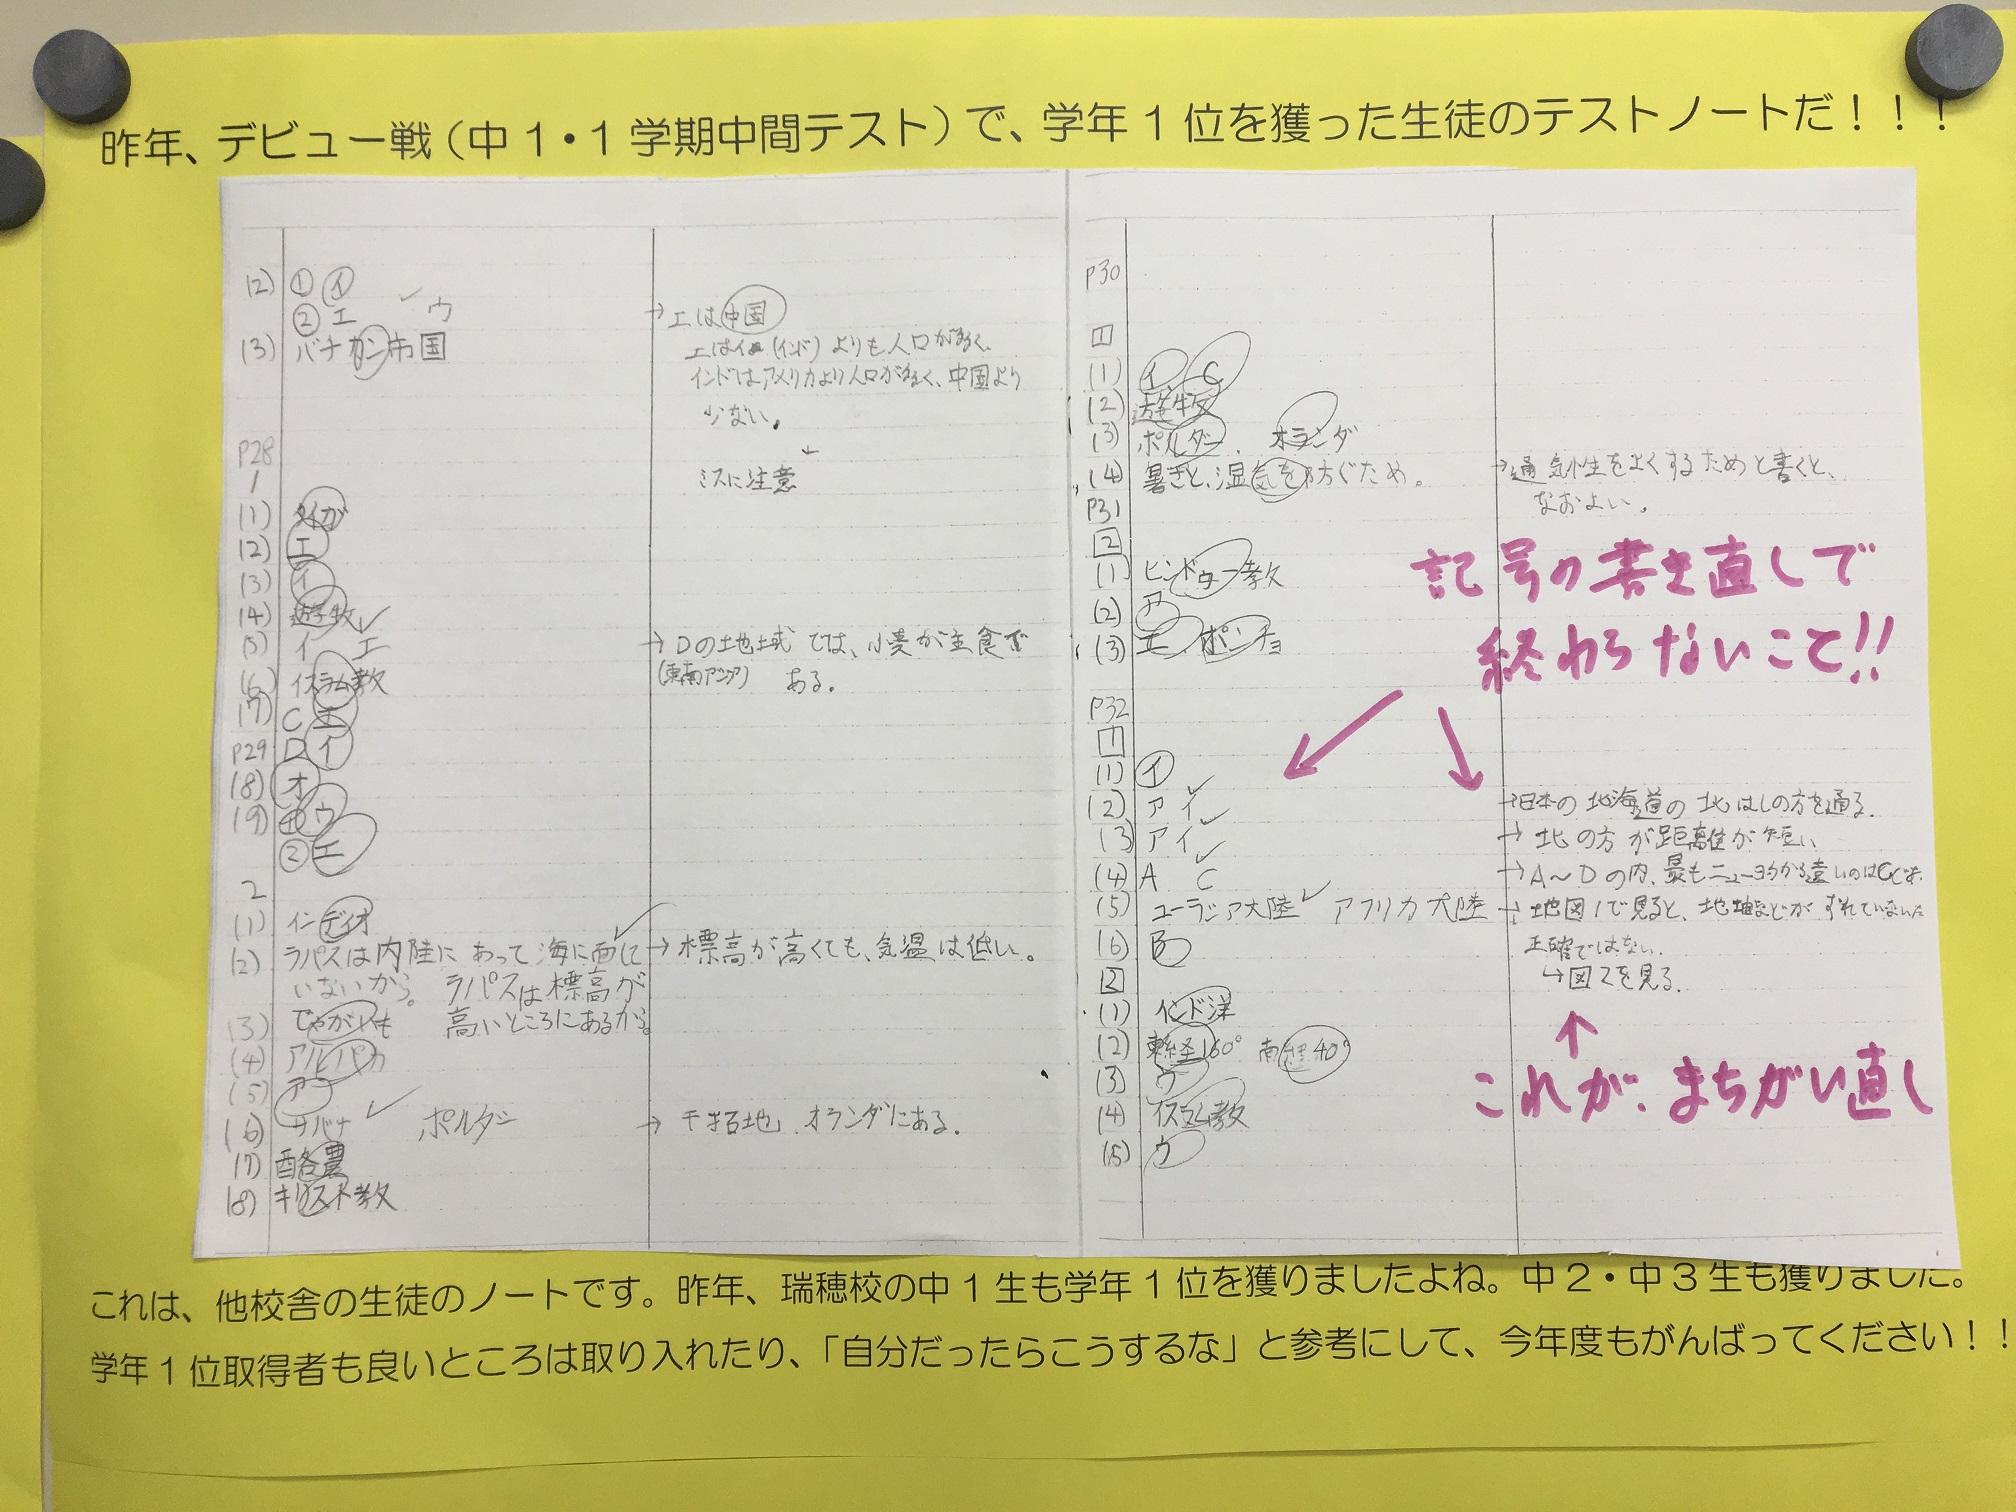 昨年、デビュー戦（中１・１学期中間テスト）で、学年１位を獲った生徒のテストノートだ！！！
(2) ① イ
② エ ウ
→エは中国
(3) バチカン市国
エは (インド) よりも人口が多く、
インドはアメリカより人口が多く、中国より
少ない。
P28
1
ミスに注意
(1) タイガ
(2) エ
(3) イ
(4) 遊牧
(5) イ エ
→Dの地域では、小麦が主食で
(東南アジア) ある。
(6) イスラム教
(7) C エ
P29 D イ
(8) オ
(9) ① ウ
② エ
2
(1) インディオ
(2) ラパスは内陸にあって海に面して
いないから。 ラパスは標高が
高いところにあるから。
→標高が高くても、気温は低い。
(3) じゃがいも
(4) アルパカ
(5) ア
(6) サバナ ポルダー
→干拓地、オランダにある。
(7) 酪農
(8) キリスト教
P30
1
(1) イ C
(2) 遊牧
(3) ポルダー、オランダ
(4) 暑さと、湿気を防ぐため。
→通気性をよくするためと書くと、
なおよい。
P31
2
(1) ヒンドゥー教
(2) ア
(3) エ ポンチョ
記号の書き直しで
終わらないこと!!
P32
1
(1) イ
(2) ア イ
→日本の北海道の北はしの方を通る。
(3) ア イ
→北の方が距離が短い
(4) A C
→A～Dの内、最もニューヨークから遠いのはCです。
(5) ユーラシア大陸 アフリカ大陸
→地図1で見ると、
正確ではない。
↳図2を見る。
(6) B
2
(1) インド洋
(2) 東経160° 南緯40°
(3) ウ
(4) イスラム教
(5) ウ
これが、まちがい直し
これは、他校舎の生徒のノートです。昨年、瑞穂校の中１生も学年１位を獲りましたよね。中２・中３生も獲りました。
学年１位取得者も良いところは取り入れたり、「自分だったらこうするな」と参考にして、今年度もがんばってください！！